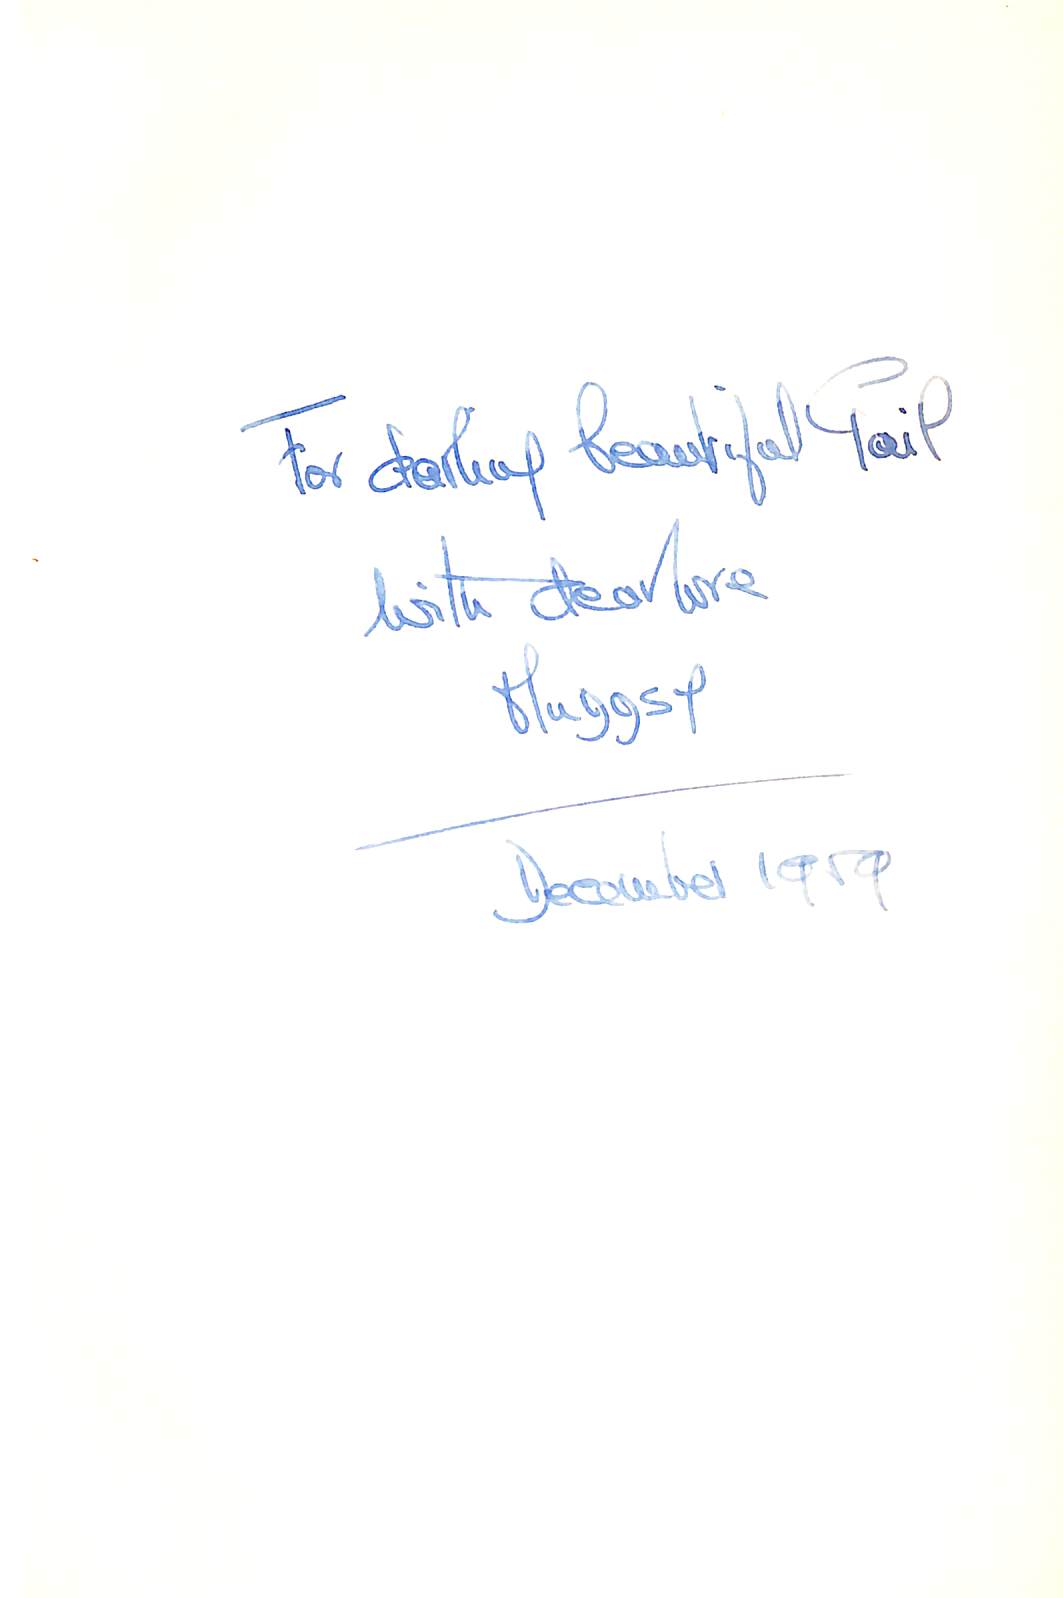 For darling beautiful Gail
with dear love
Muggsy
December 1959